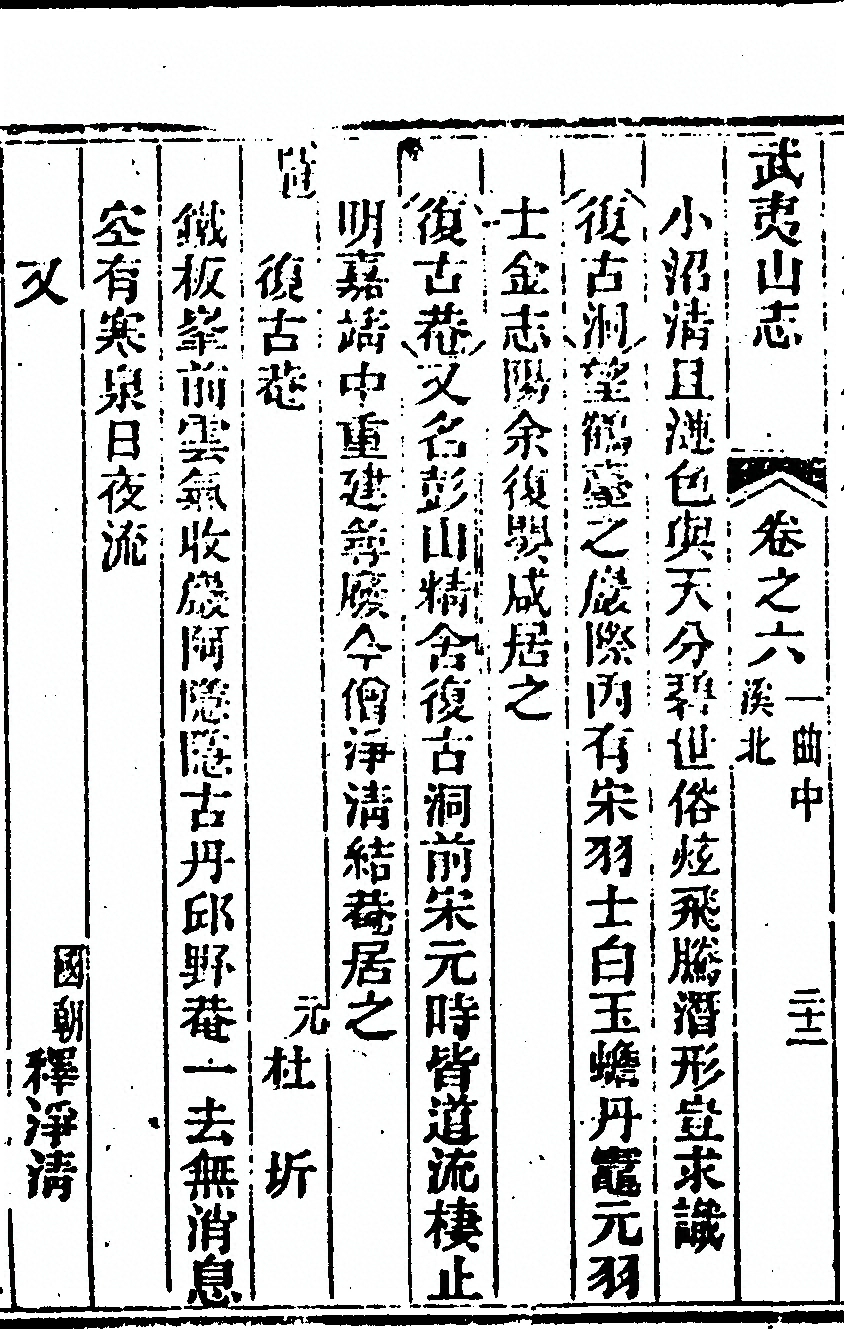 武夷山志 卷之六 一曲中溪北 二十二
小沼清且漣色與天分碧世俗炫飛騰潛形豈求識
復古洞望鶴臺之巖際內有宋羽士白玉蟾丹竈元羽
士金志陽余復嬰咸居之
復古菴又名彭山精舍復古洞前宋元時皆道流棲止
明嘉靖中重建尋廢今僧淨清結菴居之
復古菴 元杜圻
鐵板峯前雲氣收巖阿隱隱古丹邱野菴一去無消息
空有寒泉日夜流
又 國朝釋淨清